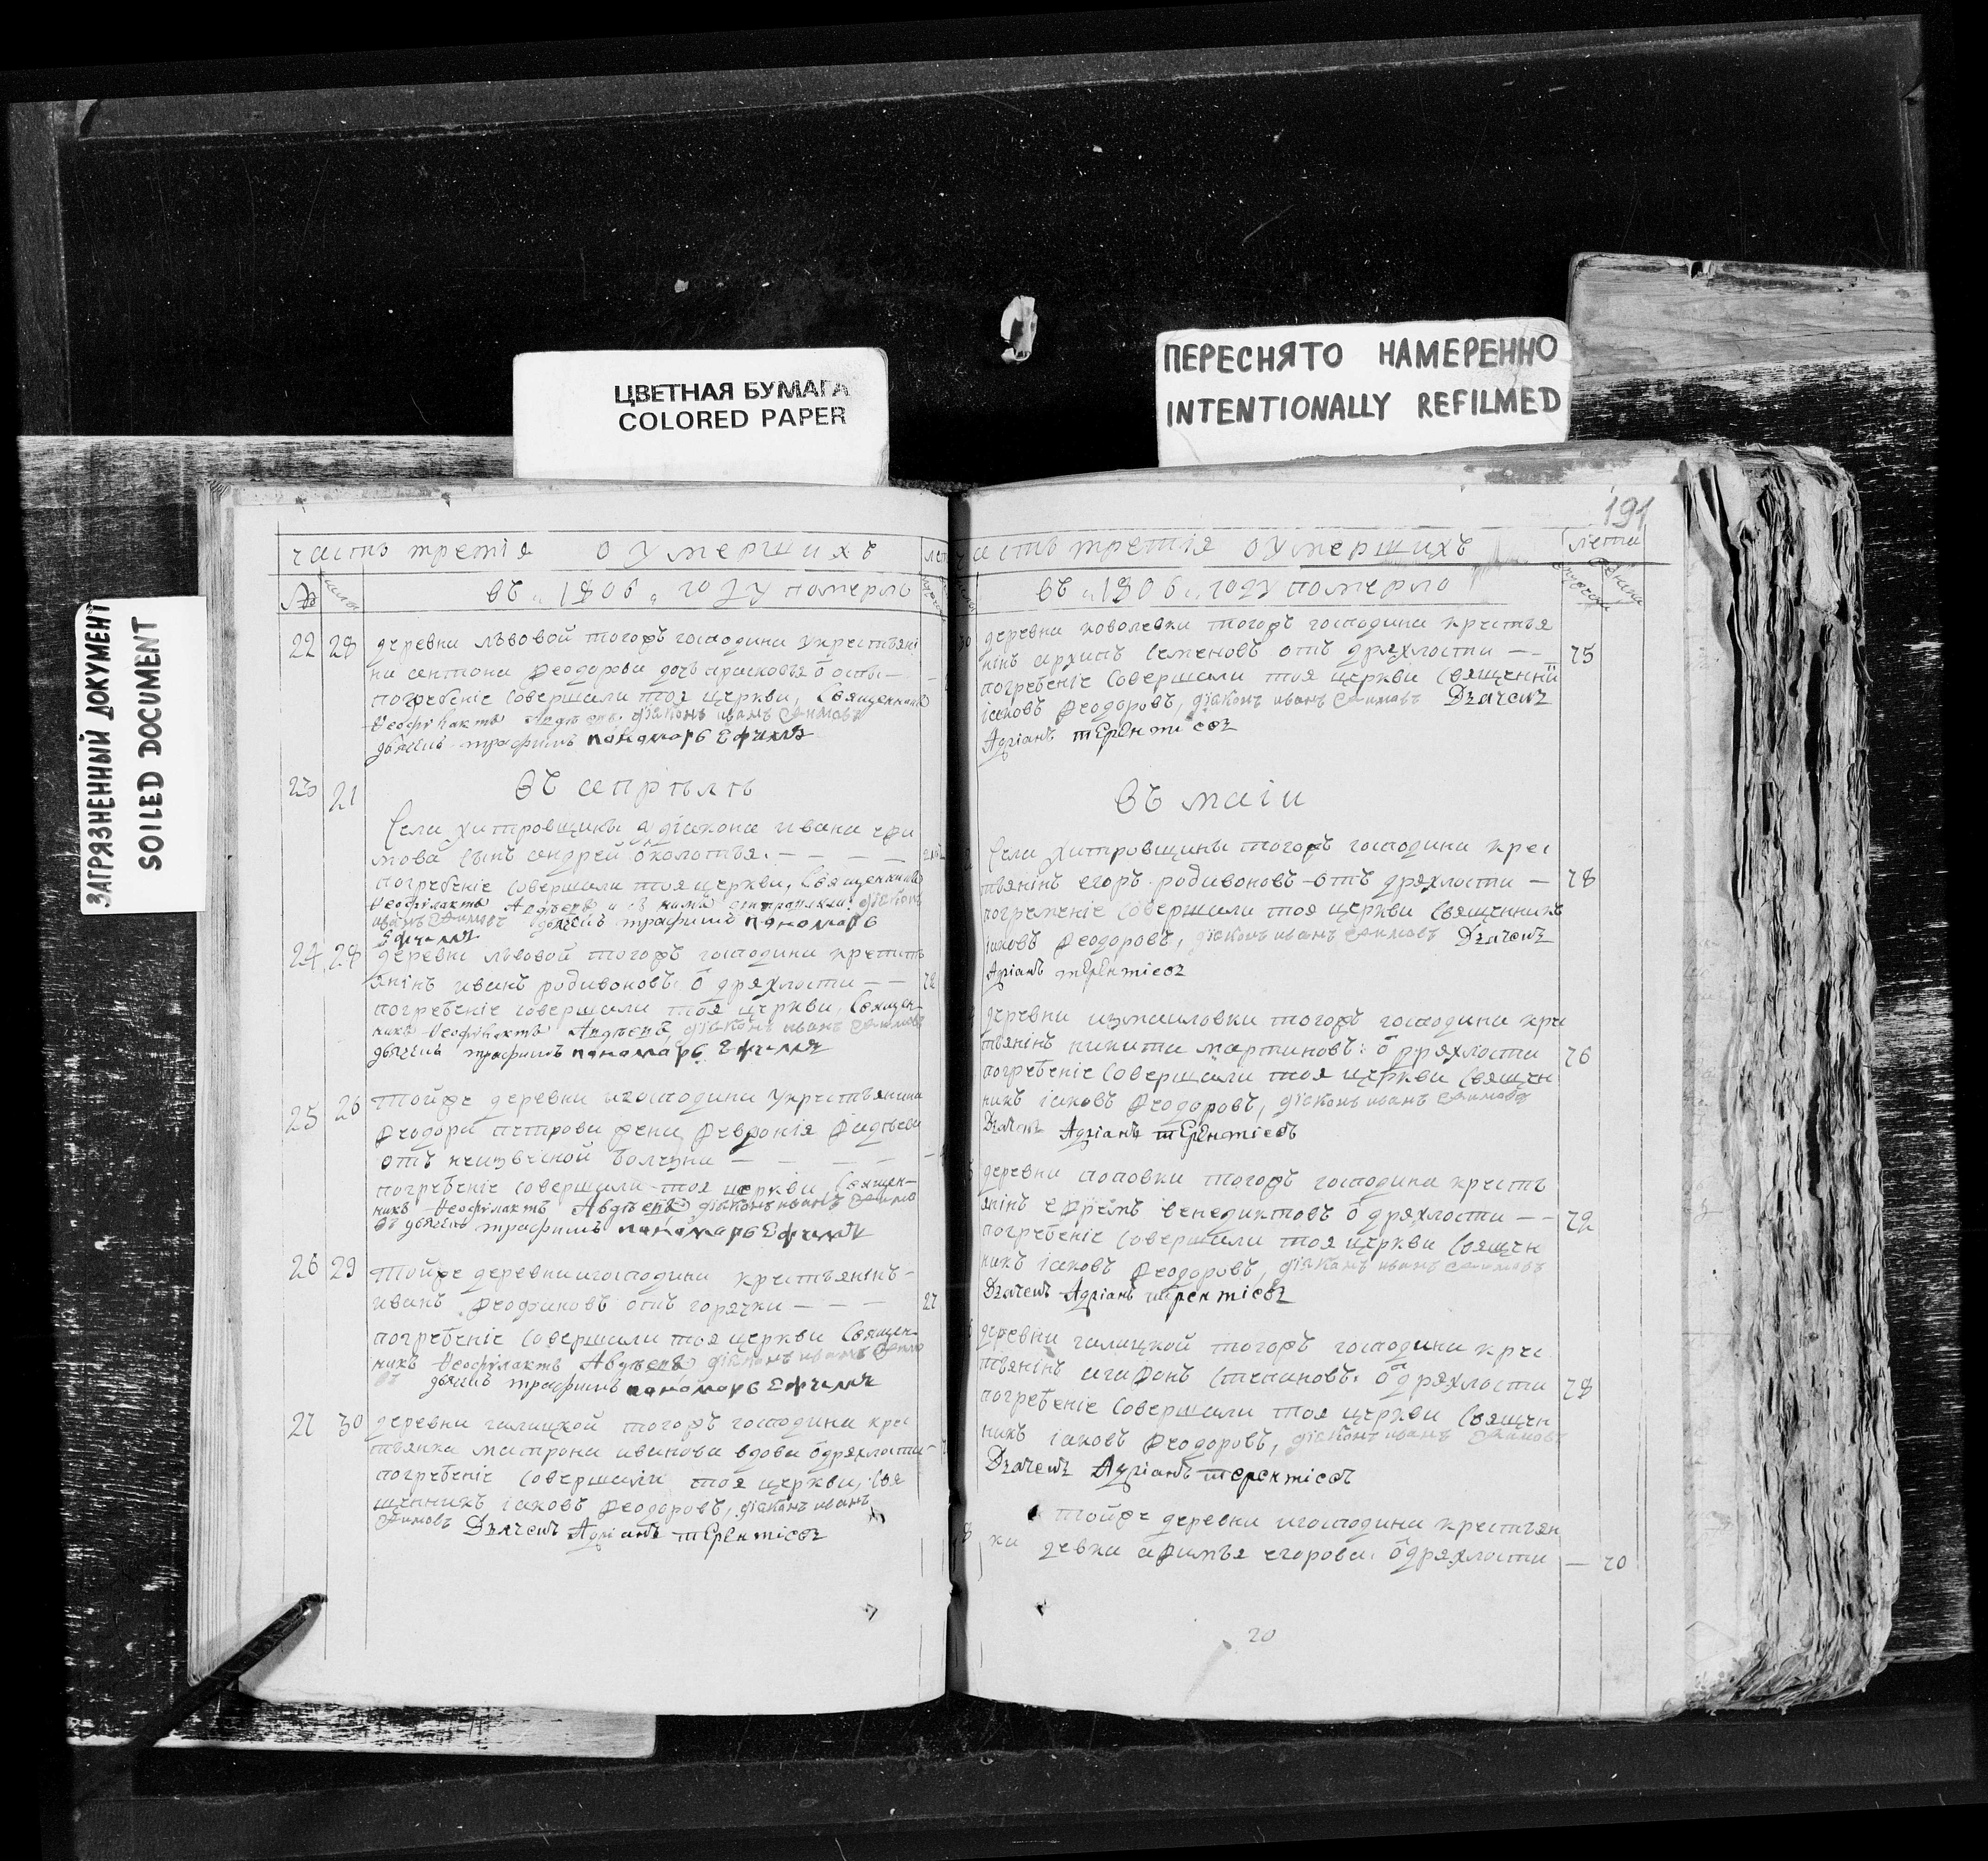 ЦВЕТНАЯ БУМАГА
COLORED PAPER
ПЕРЕСНЯТО НАМЕРЕННО
INTENTIONALLY REFILMED
ЗАГРЯЗНЕННЫЙ ДОКУМЕНТ
SOILED DOCUMENT
часть третія о умершихъ
№ въ 1806 году померло
22 28 деревни львовой тогожъ господина укрестьяни
на Феодорова дочь прасковья ѿ оспы
погребеніе совершали тоя церкви, Священникъ
Ѳеофилактъ Авдѣевъ діяконъ иванъ Ефимовъ
дьячекъ трофимъ пономарь Ефимъ
23 21 въ апрѣлѣ
Села хитровщины діакона ивана ефи
мова сынъ андрей ѿ колотья
погребеніе совершали тоя церкви, Священникъ
Ѳеофилактъ Авдѣевъ и съ нимъ діяконъ
иванъ Ефимовъ дьячекъ трофимъ пономарь
Ефимъ
24 28 деревни львовой тогожъ господина крестья
янінъ иванъ родивоновъ ѿ дряхлости 72
погребеніе совершали тоя церкви, Священ-
никъ Ѳеофилактъ Авдѣевъ, діяконъ иванъ Ефимовъ
дьячекъ трофимъ пономарь Ефимъ
25 26 тойже деревни игосподина укрестьянина
Феодора петрова жена Февронія
отъ болезни
погребеніе совершали тоя церкви, Священ-
никъ Ѳеофилактъ Авдѣевъ діяконъ иванъ Ефимо
въ дьячекъ трофимъ пономарь Ефимъ
26 29 тойже деревни игосподина крестьянінъ
иванъ отъ горячки 27
погребеніе совершали тоя церкви Священ-
никъ Ѳеофилактъ Авдѣевъ діяконъ иванъ Ефимо
въ дьячекъ трофимъ пономарь Ефимъ
27 30 деревни галицкой тогожъ господина крес
тьянка матрона иванова вдова ѿ дряхлости
погребеніе совершали тоя церкви, Свя
щенникъ іаковъ Феодоровъ, діяконъ иванъ
Ефимовъ Дьячекъ Адріанъ терентіевъ
191
часть третія о умершихъ лета
въ 1806 году померло
30 деревни коволевки тогожъ господина крестья
нінъ архипъ семеновъ отъ дряхлости 75
погребеніе совершали тоя церкви Священни
іаковъ Феодоровъ, діяконъ иванъ Ефимовъ Дьячекъ
Адріанъ терентіевъ
въ маіи
Села хитровщины тогожъ господина крес
тьянінъ егоръ родивоновъ отъ дряхлости 78
погребеніе совершали тоя церкви Священникъ
іаковъ Феодоровъ, діяконъ иванъ Ефимовъ Дьячекъ
Адріанъ терентіевъ
деревни измаиловки тогожъ господина крес
тьянінъ никита мартиновъ ѿ дряхлости 76
погребеніе совершали тоя церкви Священ
никъ іаковъ Феодоровъ, діяконъ иванъ Ефимовъ
Дьячекъ Адріанъ терентіевъ
деревни поповки тогожъ господина кресть
янінъ ефремъ венедиктовъ ѿ дряхлости 72
погребеніе совершали тоя церкви Священ
никъ іаковъ Феодоровъ, діяконъ иванъ Ефимовъ
Дьячекъ Адріанъ терентіевъ
деревни галицкой тогожъ господина крес
тьянінъ агафонъ степановъ ѿ дряхлости 78
погребеніе совершали тоя церкви Священ
никъ іаковъ Феодоровъ, діяконъ иванъ Ефимовъ
Дьячекъ Адріанъ терентіевъ
тойже деревни игосподина крестьян
ка девка афимья егорова ѿ дряхлости 70
20